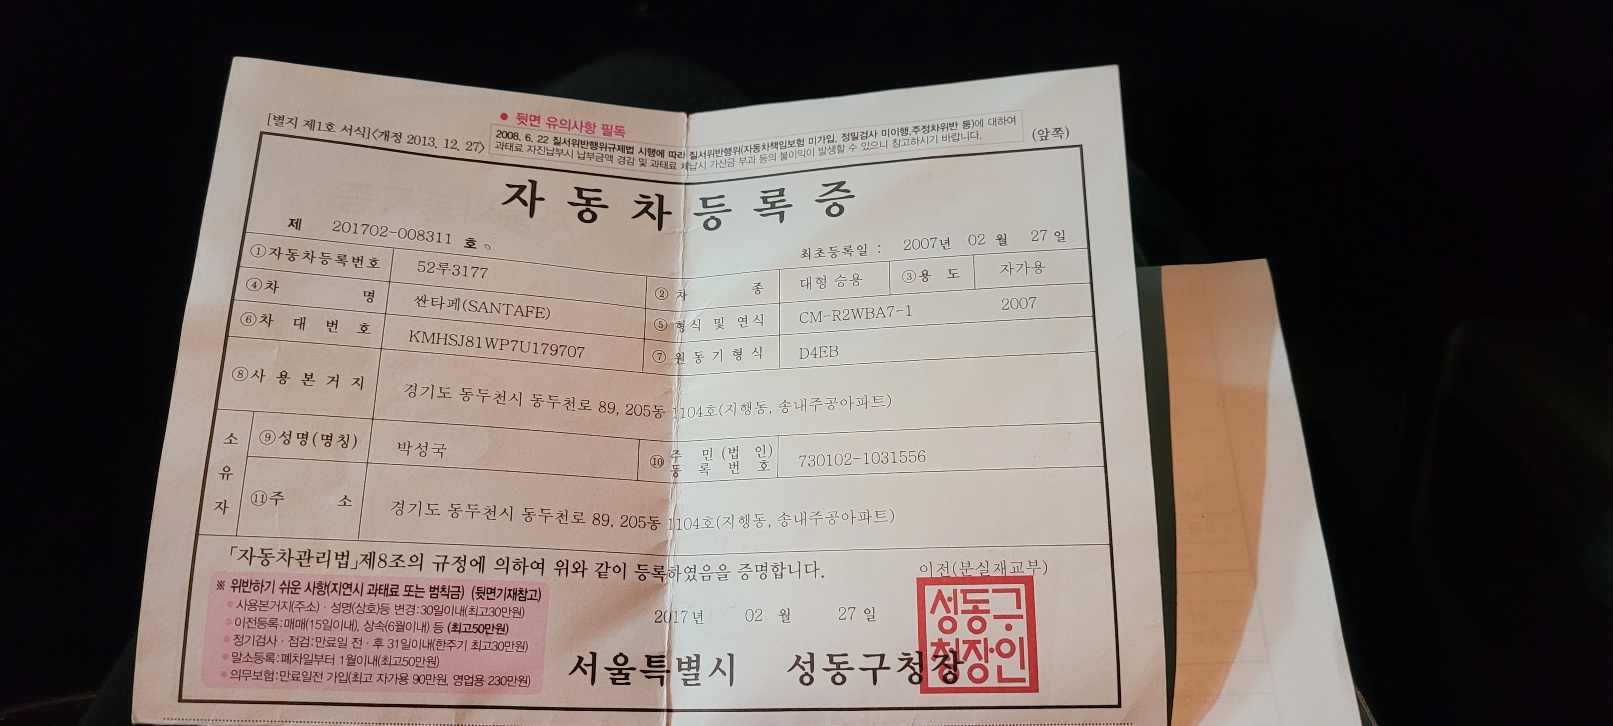 [별지 제1호 서식]<개정 2013. 12. 27>
● 뒷면 유의사항 필독
2008. 6. 22 질서위반행위규제법 시행에 따라 질서위반행위(자동차책임보험 미가입, 정밀검사 미이행,주정차위반 등)에 대하여
과태료 자진납부시 납부금액 경감 및 과태료 체납시 가산금 부과 등의 불이익이 발생할 수 있으니 참고하시기 바랍니다.
(앞쪽)
자동차등록증
제 201702-008311 호
최초등록일 : 2007년 02 월 27 일
①자동차등록번호 52루3177 ② 차 종 대형 승용 ③용 도 자가용
④차 명 싼타페(SANTAFE) ⑤ 형식 및 연식 CM-R2WBA7-1 2007
⑥차 대 번 호 KMHSJ81WP7U179707 ⑦ 원 동 기 형 식 D4EB
⑧사 용 본 거 지 경기도 동두천시 동두천로 89, 205동 1104호(지행동, 송내주공아파트)
소유자
⑨성명(명칭) 박성국 ⑩ 주 민 (법 인) 등 록 번 호 730102-1031556
⑪주 소 경기도 동두천시 동두천로 89, 205동 1104호(지행동, 송내주공아파트)
「자동차관리법」제8조의 규정에 의하여 위와 같이 등록하였음을 증명합니다.
이전(분실재교부)
※ 위반하기 쉬운 사항(지연시 과태료 또는 범칙금) (뒷면기재참고)
사용본거지(주소)·성명(상호)등 변경:30일이내(최고30만원)
이전등록:매매(15일이내), 상속(6월이내) 등 (최고50만원)
정기검사·점검:만료일 전·후 31일이내(한주기 최고30만원)
말소등록:폐차일부터 1월이내(최고50만원)
의무보험:만료일전 가입(최고 자가용 90만원, 영업용 230만원)
2017년 02 월 27 일
서울특별시 성동구청장
성동구
청장인